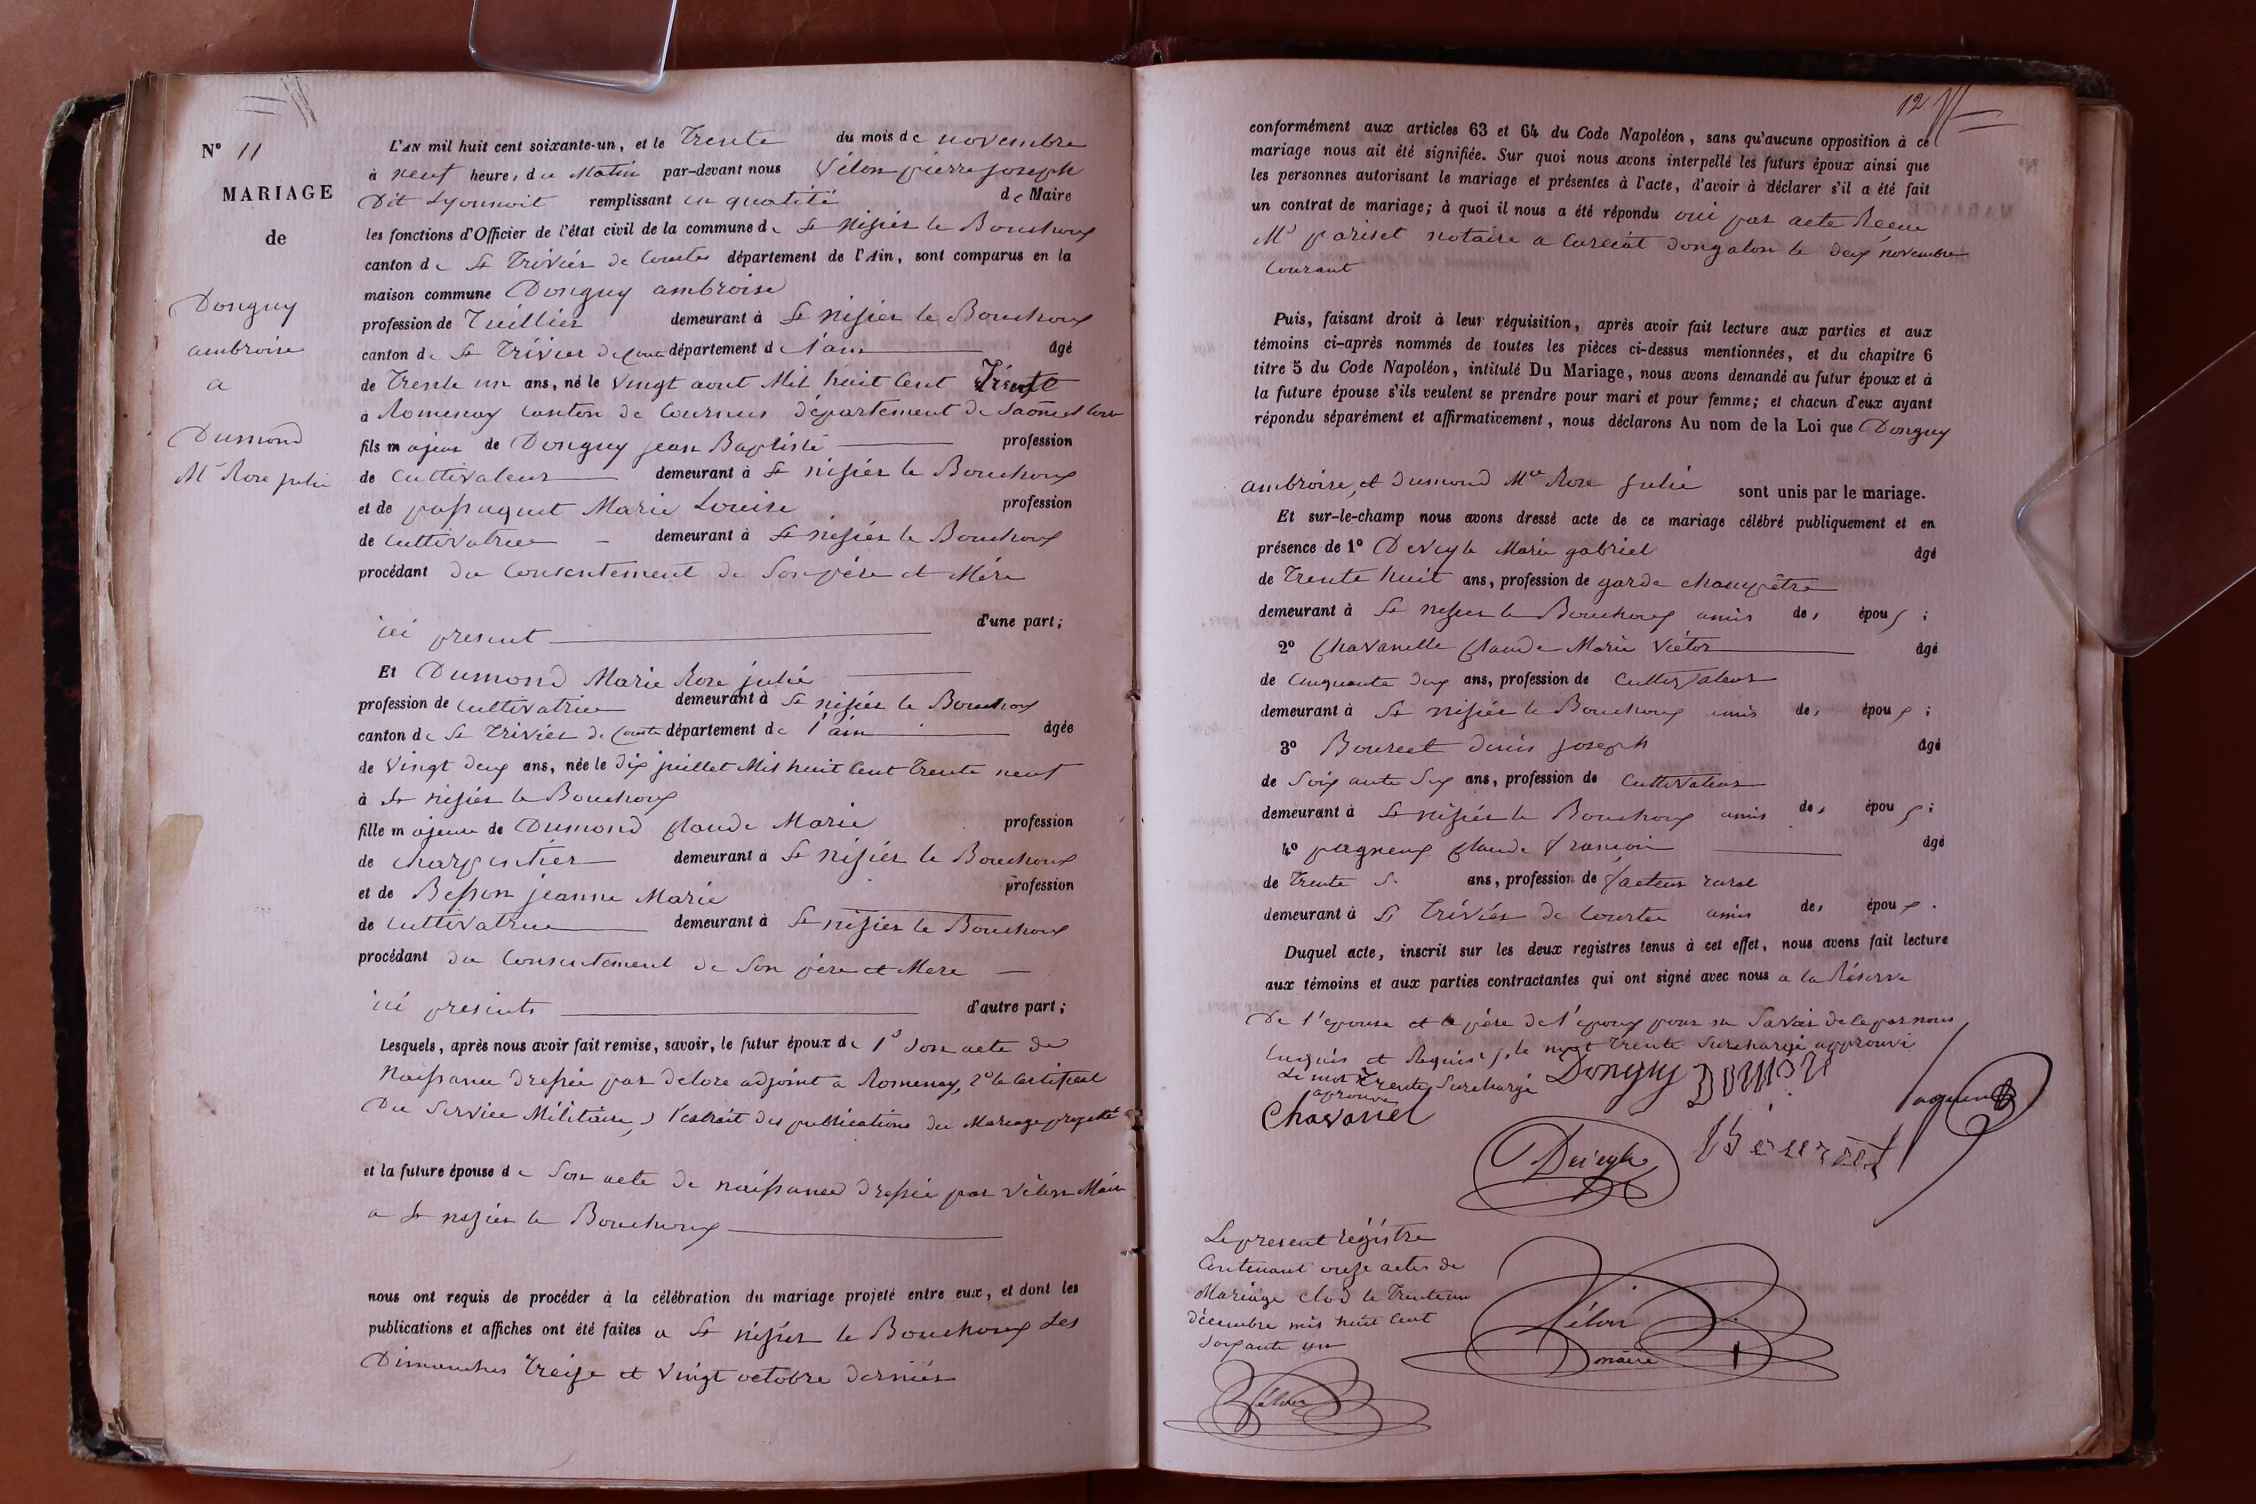 N° 11
MARIAGE
de
Donguy
ambroise
a
Dumond
Mie Rose julie
L'AN mil huit cent soixante-un, et le Trente du mois de novembre
à neuf heures du Matin par-devant nous Vélon pierre joseph
Dit Lyonnoit remplissant en qualité de Maire
les fonctions d'Officier de l'état civil de la commune de St Nisier le Bouchoux
canton de St Trivier de Courtes département de l'Ain, sont comparus en la
maison commune Donguy ambroise
profession de Tuillier demeurant à St Nisier le Bouchoux
canton de St Trivier de Courtes département de l'ain âgé
de Trente un ans, né le vingt aout Mil huit Cent Trente
a Romenay Canton de Cournus département de Saône et Loire
fils majeur de Donguy jean Baptiste profession
de Cultivateur demeurant à St nisier le Bouchoux
et de passaquet Marie Louise profession
de Cultivatrice demeurant à St nisier le Bouchoux
procédant du Consentement de Son père et Mère
ici present d'une part;
Et Dumond Marie Rose julie
profession de Cultivatrice demeurant à St nisier le Bouchoux
canton de St Trivier de Courtes département de l'ain âgée
de vingt deux ans, née le dix juillet Mil huit Cent Trente neuf
à St nisier le Bouchoux
fille majeure de Dumond Claude Marie profession
de charpentier demeurant à St nisier le Bouchoux
et de Besson jeanne Marie profession
de Cultivatrice demeurant à St nisier le Bouchoux
procédant du Consentement de Son père et Mere
ici presents d'autre part;
Lesquels, après nous avoir fait remise, savoir, le futur époux de 1° Son acte de
Naissance dressée par delore adjoint a Romenay, 2° le Certificat
Du Service Militaire, 3 l'extrait des publications du Mariage projetté
et la future épouse de Son acte de naissance dressée par Vélon Maire
a St nisier le Bouchoux
nous ont requis de procéder à la célébration du mariage projeté entre eux, et dont les
publications et affiches ont été faites a St nisier le Bouchoux Les
Dimanches Treize et vingt octobre dernier
12
conformément aux articles 63 et 64 du Code Napoléon, sans qu'aucune opposition à ce
mariage nous ait été signifiée. Sur quoi nous avons interpellé les futurs époux ainsi que
les personnes autorisant le mariage et présentes à l'acte, d'avoir à déclarer s'il a été fait
un contrat de mariage; à quoi il nous a été répondu oui par acte Recue
Me pariset notaire a Curciat dongalon le deux novembre
Courant
Puis, faisant droit à leur réquisition, après avoir fait lecture aux parties et aux
témoins ci-après nommés de toutes les pièces ci-dessus mentionnées, et du chapitre 6
titre 5 du Code Napoléon, intitulé Du Mariage, nous avons demandé au futur époux et à
la future épouse s'ils veulent se prendre pour mari et pour femme; et chacun d'eux ayant
répondu séparément et affirmativement, nous déclarons Au nom de la Loi que Donguy
ambroise, et Dumond Mie Rose julie sont unis par le mariage.
Et sur-le-champ nous avons dressé acte de ce mariage célébré publiquement et en
présence de 1° Deveyle Marie gabriel âgé
de Trente huit ans, profession de garde champêtre
demeurant à St nisier le Bouchoux amis des époux;
2° Chavanelle Claude Marie Victor âgé
de Cinquante deux ans, profession de Cultivateur
demeurant à St nisier le Bouchoux amis des époux;
3° Bouret denis joseph âgé
de Soixante Six ans, profession de Cultivateur
demeurant à St nisier le Bouchoux amis des époux;
4° pagneux Claude francois âgé
de Trente ans, profession de facteur rural
demeurant à St Trivier de Courtes amis des époux.
Duquel acte, inscrit sur les deux registres tenus à cet effet, nous avons fait lecture
aux témoins et aux parties contractantes qui ont signé avec nous a la Réserve
De l'epouse et le père de l'epoux pour ne Savoir de le par nous
Enquis et Requis, le mot Trente Surchargé approuvé
Le mot Trente Surchargé
aprouve
Donguy Dumon
Chavanel
Deveyle
Bouret
Le present régistre
Contenant onze actes de
Mariage Clod le Trente un
décembre mil huit Cent
Soixante un
Vélon
maire
Vélon